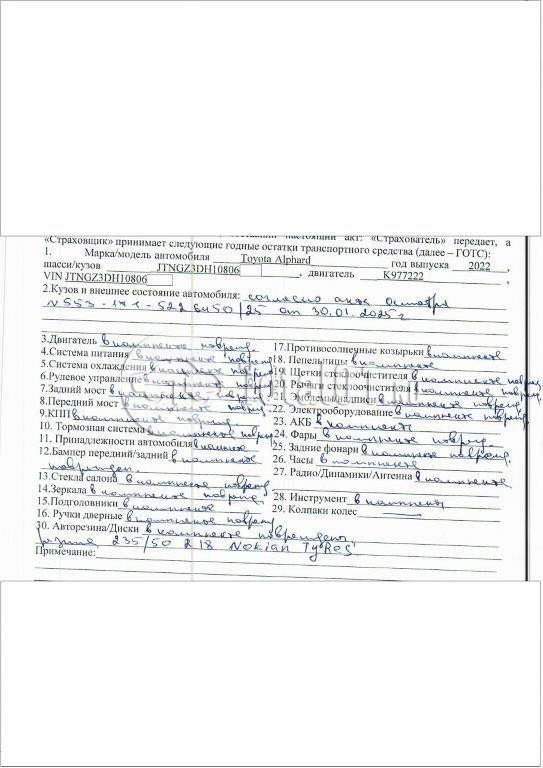 составили настоящий акт: «Страхователь» передает, а
«Страховщик» принимает следующие годные остатки транспортного средства (далее – ГОТС):
1. Марка/модель автомобиля Toyota Alphard год выпуска 2022 ,
шасси/кузов JTNGZ3DH10806 , двигатель K977222 ,
VIN JTNGZ3DH10806
2.Кузов и внешнее состояние автомобиля: согласно акта осмотра
от 30.01.2025г
3.Двигатель в комплекте поврежд 17.Противосолнечные козырьки в комплекте
4.Система питания в комплекте поврежд 18. Пепельницы в комплекте
5.Система охлаждения в комплекте поврежд 19. Щетки стеклоочистителя в комплекте поврежд
6.Рулевое управление в комплекте поврежд 20. Рычаги стеклоочистителя в комплекте поврежд
7.Задний мост в комплекте поврежд 21. Эмблемы/надписи в комплекте поврежд
8.Передний мост в комплекте поврежд 22. Электрооборудование в комплект поврежд
9.КПП в комплекте поврежд 23. АКБ в комплекте
10. Тормозная система в комплекте поврежд 24. Фары в комплекте поврежд
11. Принадлежности автомобиля в комплекте 25. Задние фонари в комплекте поврежд.
12.Бампер передний/задний в комплекте 26. Часы в комплекте
поврежден. 27. Радио/Динамики/Антенна в комплекте
13.Стекла салона в комплекте поврежд
14.Зеркала в комплекте поврежд 28. Инструмент в комплект
15.Подголовники в комплекте 29. Колпаки колес
16. Ручки дверные в комплекте поврежд
30. Авторезина/Диски в комплекте поврежден
резина 235/50 R18 Nokian TyRes
Примечание: